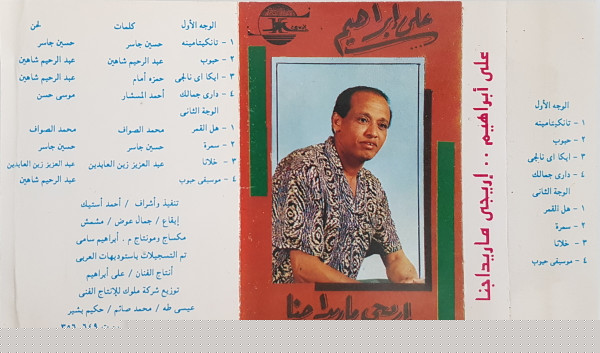 الوجه الأول كلمات لحن
١ - تانكيتامينه حسين جاسر حسين جاسر
٢ - حبوب عبد الرحيم شاهين عبد الرحيم شاهين
٣ - ايكا اى نالجى حمزه أمام
٤ - دارى جمالك أحمد المستشار موسى حسن
الوجة الثانى
١ - هل القمر محمد الصواف محمد الصواف
٢ - سمرة حسين جاسر حسين جاسر
٣ - خلانا عبد العزيز زين العابدين عبد العزيز زين العابدين
٤ - موسيقى حبوب عبد الرحيم شاهين
تنفيذ وأشراف / أحمد أستيك
إيقاع / جمال عوض / مشمش
مكساج ومونتاج م . أبراهيم سامى
تم التسجيلات باستوديهات العربى
أنتاج الفنان / على أبراهيم
توزيع شركة ملوك للإنتاج الفنى
عيسى طه / محمد صائم / حكيم بشير
على إبراهيم
اريجى ماريداجنا
على أبراهيم .. اريجى ماريداجنا
الوجه الأول
١ - تانكيتامينه
٢ - حبوب
٣ - ايكا اى نالجى
٤ - دارى جمالك
الوجة الثانى
١ - هل القمر
٢ - سمرة
٣ - خلانا
٤ - موسيقى حبوب